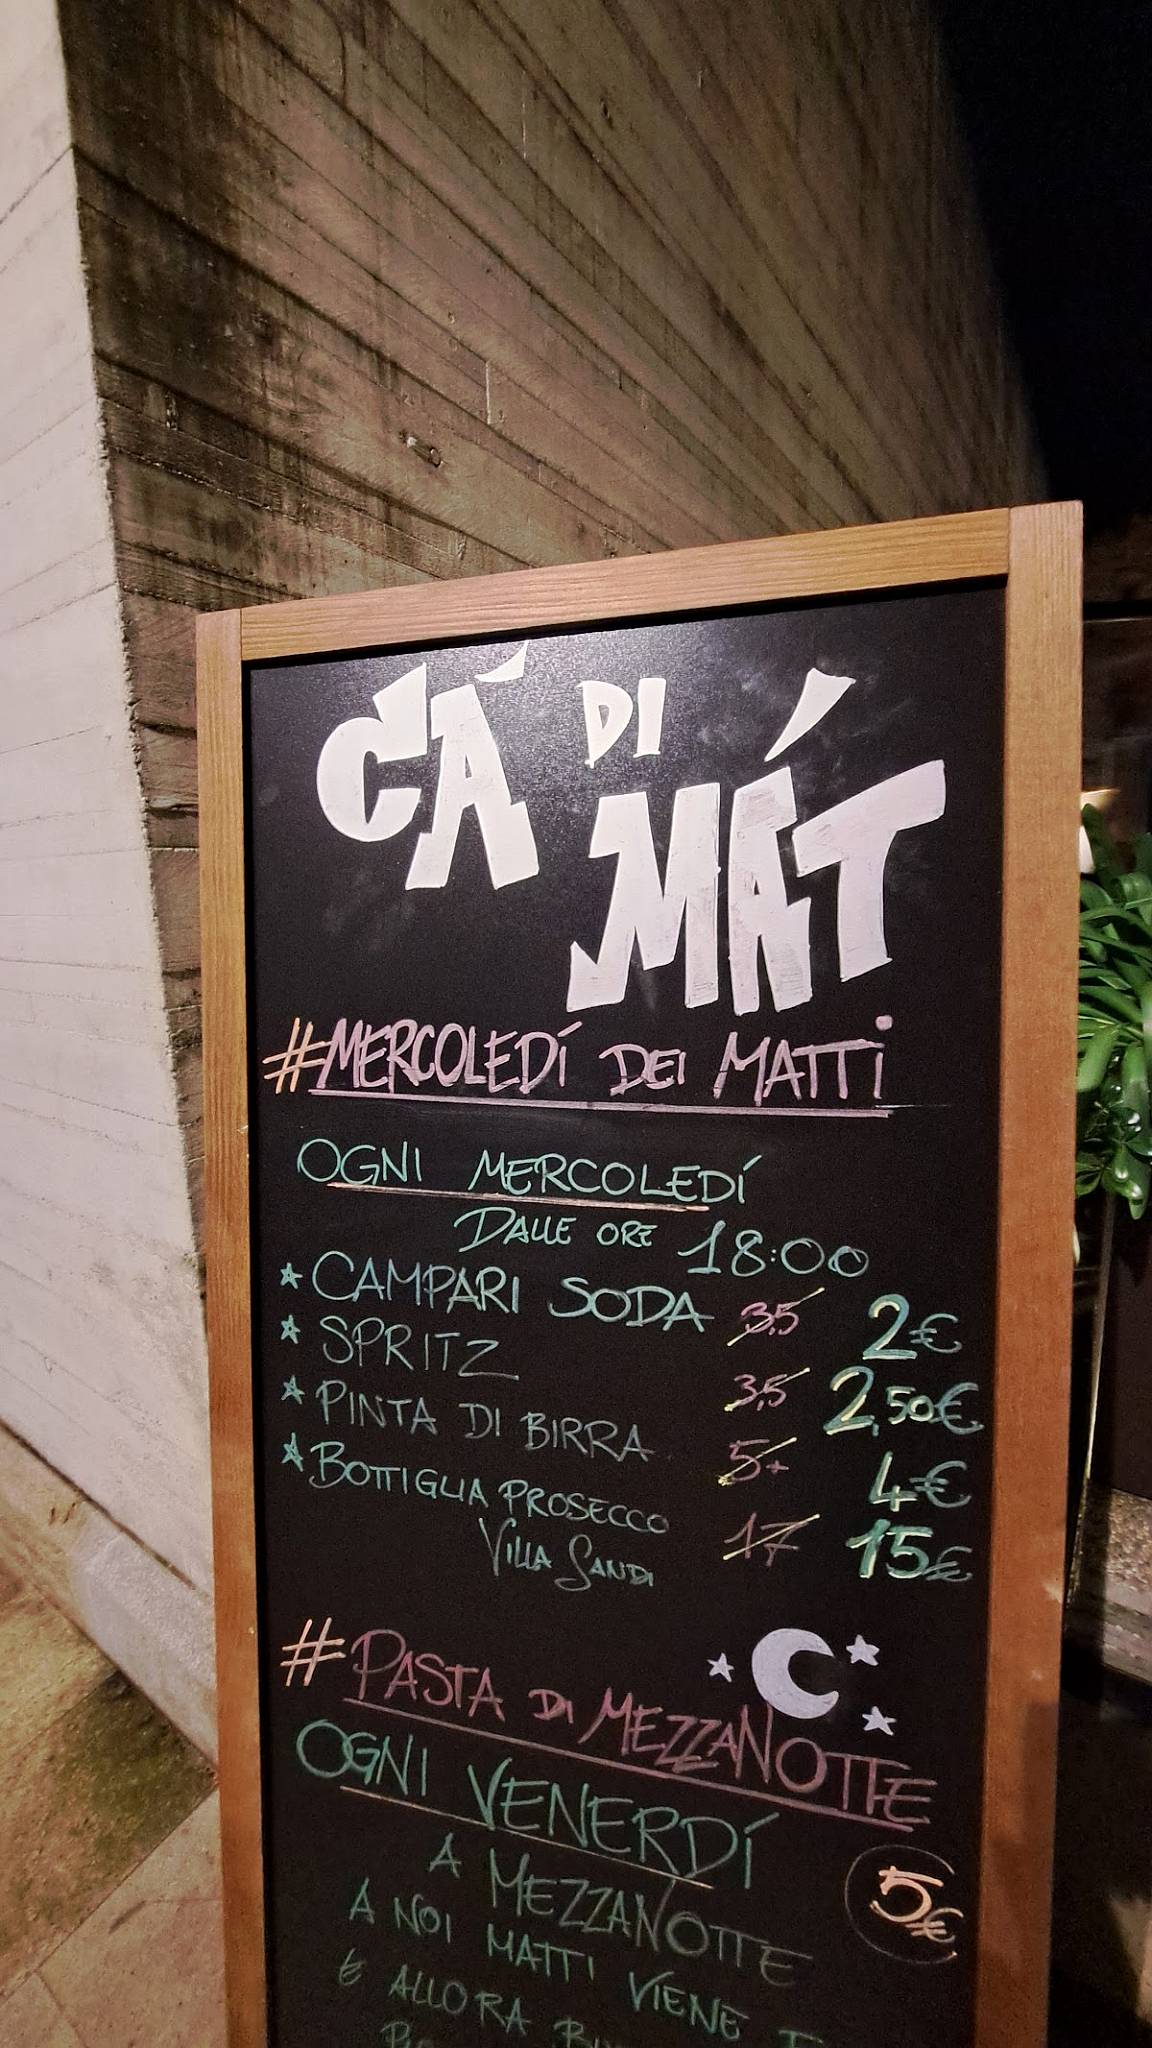 CÁ DI MÁT
#MERCOLEDÍ DEI MATTI
OGNI MERCOLEDÍ
DALLE ORE 18:00
CAMPARI SODA 3,5 2€
SPRITZ 3,5 2,50€
PINTA DI BIRRA 5 4€
BOTTIGLIA PROSECCO 17 15€
VILLA SANDI
# PASTA DI MEZZANOTTE
OGNI VENERDÍ
A MEZZANOTTE 5€
A NOI MATTI VIENE
E ALLORA